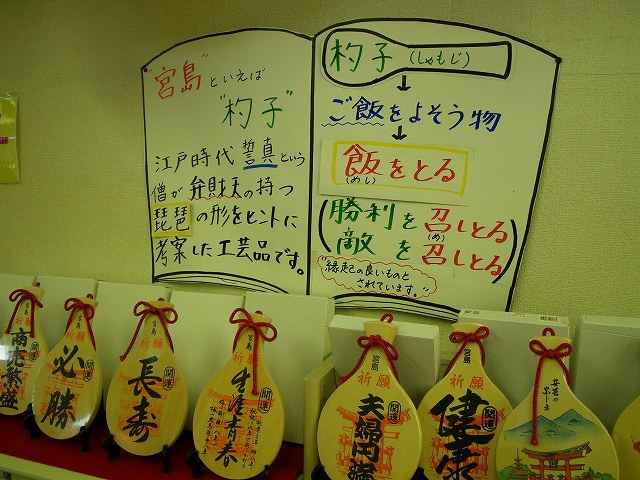 "宮島"といえば
"杓子"
江戸時代 誓真という
僧が弁財天の持つ
琵琶の形をヒントに
考案した工芸品です。
杓子(しゃもじ)
↓
ご飯をよそう物
↓
飯をとる
(めし)
(勝利を召しとる
(め)
敵を召しとる)
"縁起の良いものと
されています。"
商売繁盛
開運
祈願
必勝
開運
宮島
祈願
長寿
開運
祈願
生涯青春
開運
宮島
祈願
夫婦円満
開運
宮島
祈願
健康
開運
安芸の
宮じま